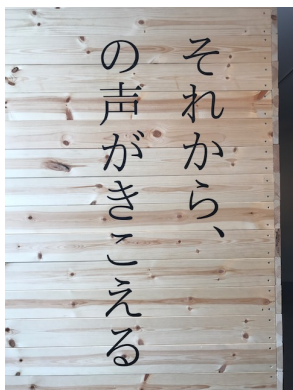 それから、
の声がきこえる